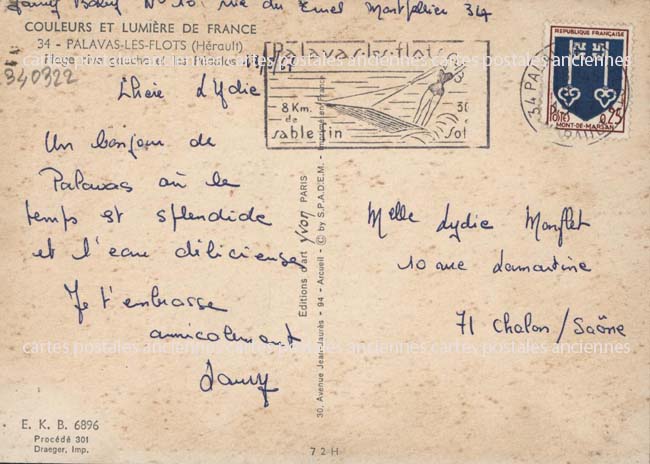 N° 10 rue du Montpellier 34
COULEURS ET LUMIÈRE DE FRANCE
34 - PALAVAS-LES-FLOTS (Hérault)
Plage rive gauche et le
340322
Chère Lydie
Un bonjour de
Palavas où le
temps est splendide
et l'eau délicieuse
Je t'embrasse
amicalement
E. K. B. 6896
Procédé 301
Draeger, Imp.
Editions d'art yvon PARIS
30, Avenue Jean-Jaurès - 94 - Arcueil - © by S.P.A.D.E.M. - en France
72H
Palavas-les-flots
8 Km.
de
sable fin
sol
34 PA
REPUBLIQUE FRANÇAISE
POSTES
0,25
MONT-DE-MARSAN
Melle Lydie
10 rue Lamartine
71 Chalon/Saône
cartes postales anciennes cartes postales anciennes cartes postales anciennes
cartes postales anciennes cartes postales anciennes cartes postales anciennes